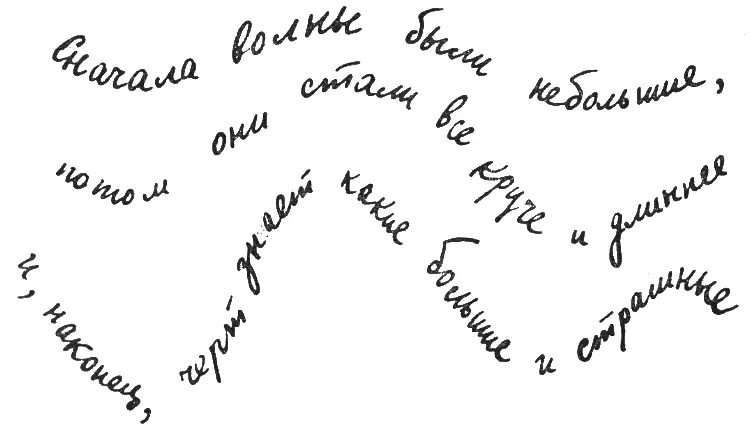 Сначала волны были небольшие,
потом они стали все круче и длиннее
и, наконец, черт знает какие большие и страшные